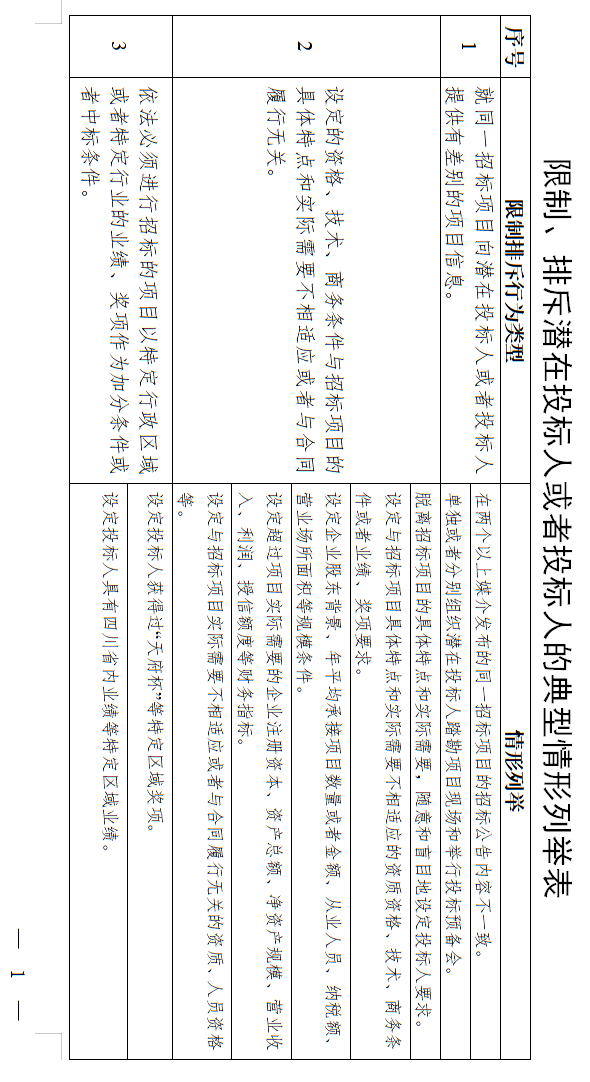 限制、排斥潜在投标人或者投标人的典型情形列举表
序号
限制排斥行为类型
情形列举
1
就同一招标项目向潜在投标人或者投标人
提供有差别的项目信息。
在两个以上媒介发布的同一招标项目的招标公告内容不一致。
单独或者分别组织潜在投标人踏勘项目现场和举行投标预备会。
2
设定的资格、技术、商务条件与招标项目的
具体特点和实际需要不相适应或者与合同
履行无关。
脱离招标项目的具体特点和实际需要，随意和盲目地设定投标人要求。
设定与招标项目具体特点和实际需要不相适应的资质资格、技术、商务条
件或者业绩、奖项要求。
设定企业股东背景、年平均承接项目数量或者金额、从业人员、纳税额、
营业场所面积等规模条件。
设定超过项目实际需要的企业注册资本、资产总额、净资产规模、营业收
入、利润、授信额度等财务指标。
设定与招标项目实际需要不相适应或者与合同履行无关的资质、人员资格
等。
3
依法必须进行招标的项目以特定行政区域
或者特定行业的业绩、奖项作为加分条件或
者中标条件。
设定投标人获得过“天府杯”等特定区域奖项。
设定投标人具有四川省内业绩等特定区域业绩。
— 1 —